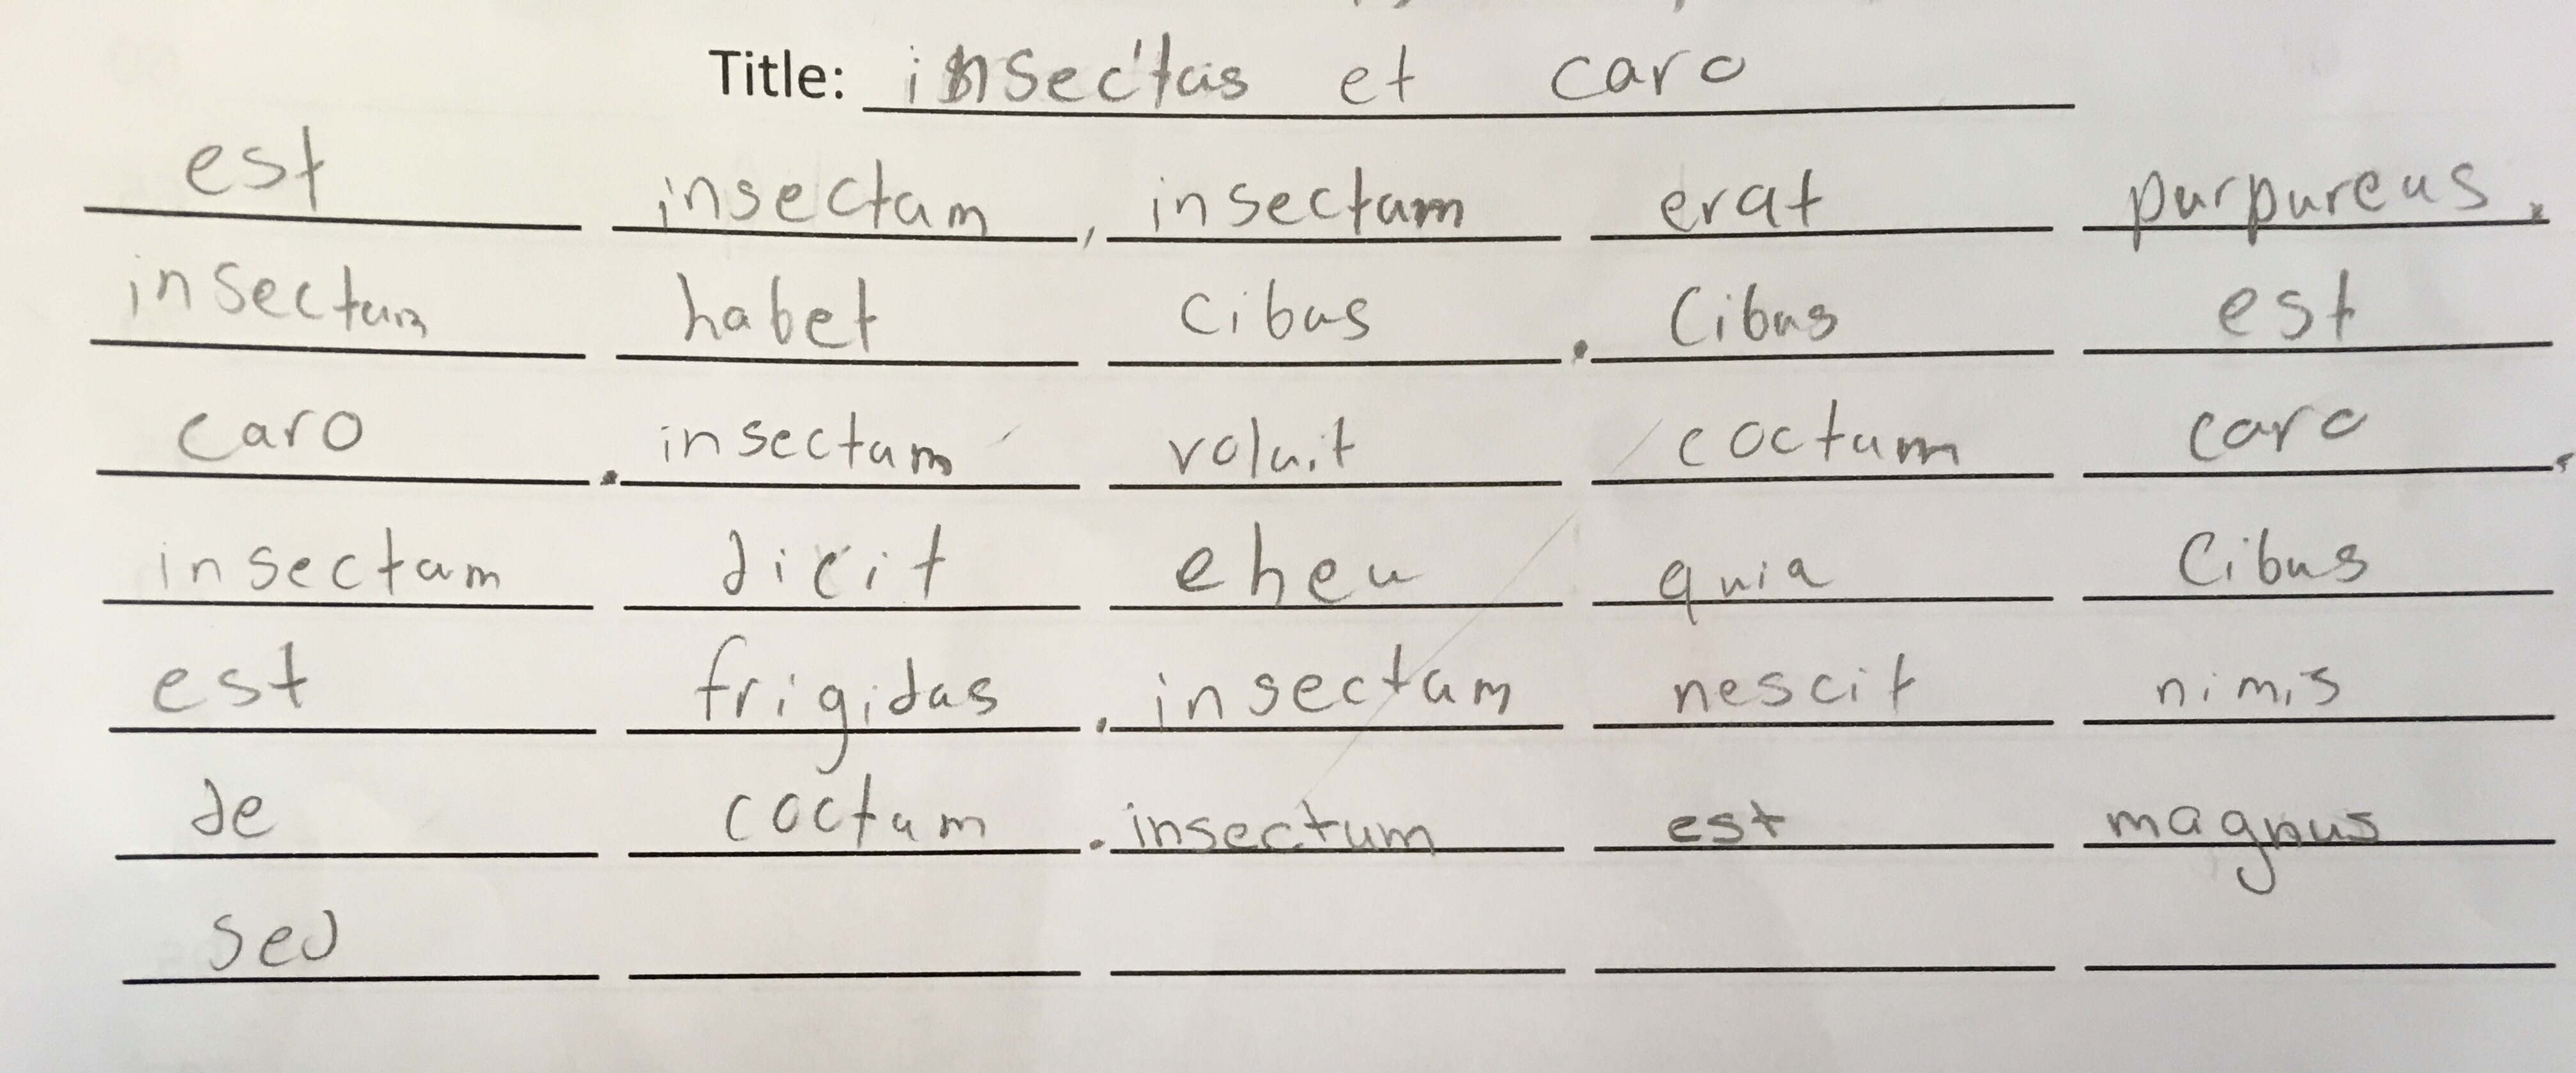 Title: insectus et caro
est insectum, insectum erat purpureus.
insectum habet cibus. Cibus est
caro. insectum voluit coctum caro.
insectum dicit eheu quia Cibus
est frigidus. insectum nescit nimis
de coctum. insectum est magnus
sed